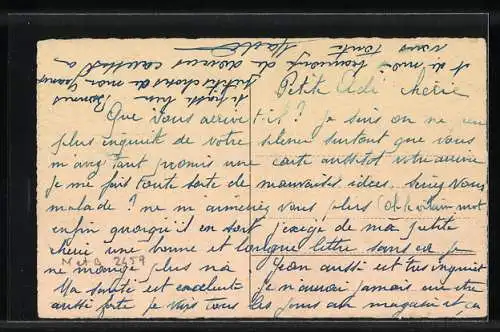 Petite Adi chérie
Que vous arrive t-il? je suis on ne peu
plus inquiète de votre silence surtout que vous
m'avez tant promis une carte aussitôt votre arrivée
je me fais toute sorte de mauvaises idées, seriez vous
malade? ne m'aimeriez vous plus (oh le vilain mot
enfin quoiqu'il en soit j'exige de ma petite
chérie une bonne et longue lettre sans ça je
ne mange plus na Jean aussi est très inquiet
Ma santé est excellente je n'aurai jamais cru être
aussi forte je vais tous les jours au magasin et ça
M et A 2659
et à moi
vous toute
beaucoup de